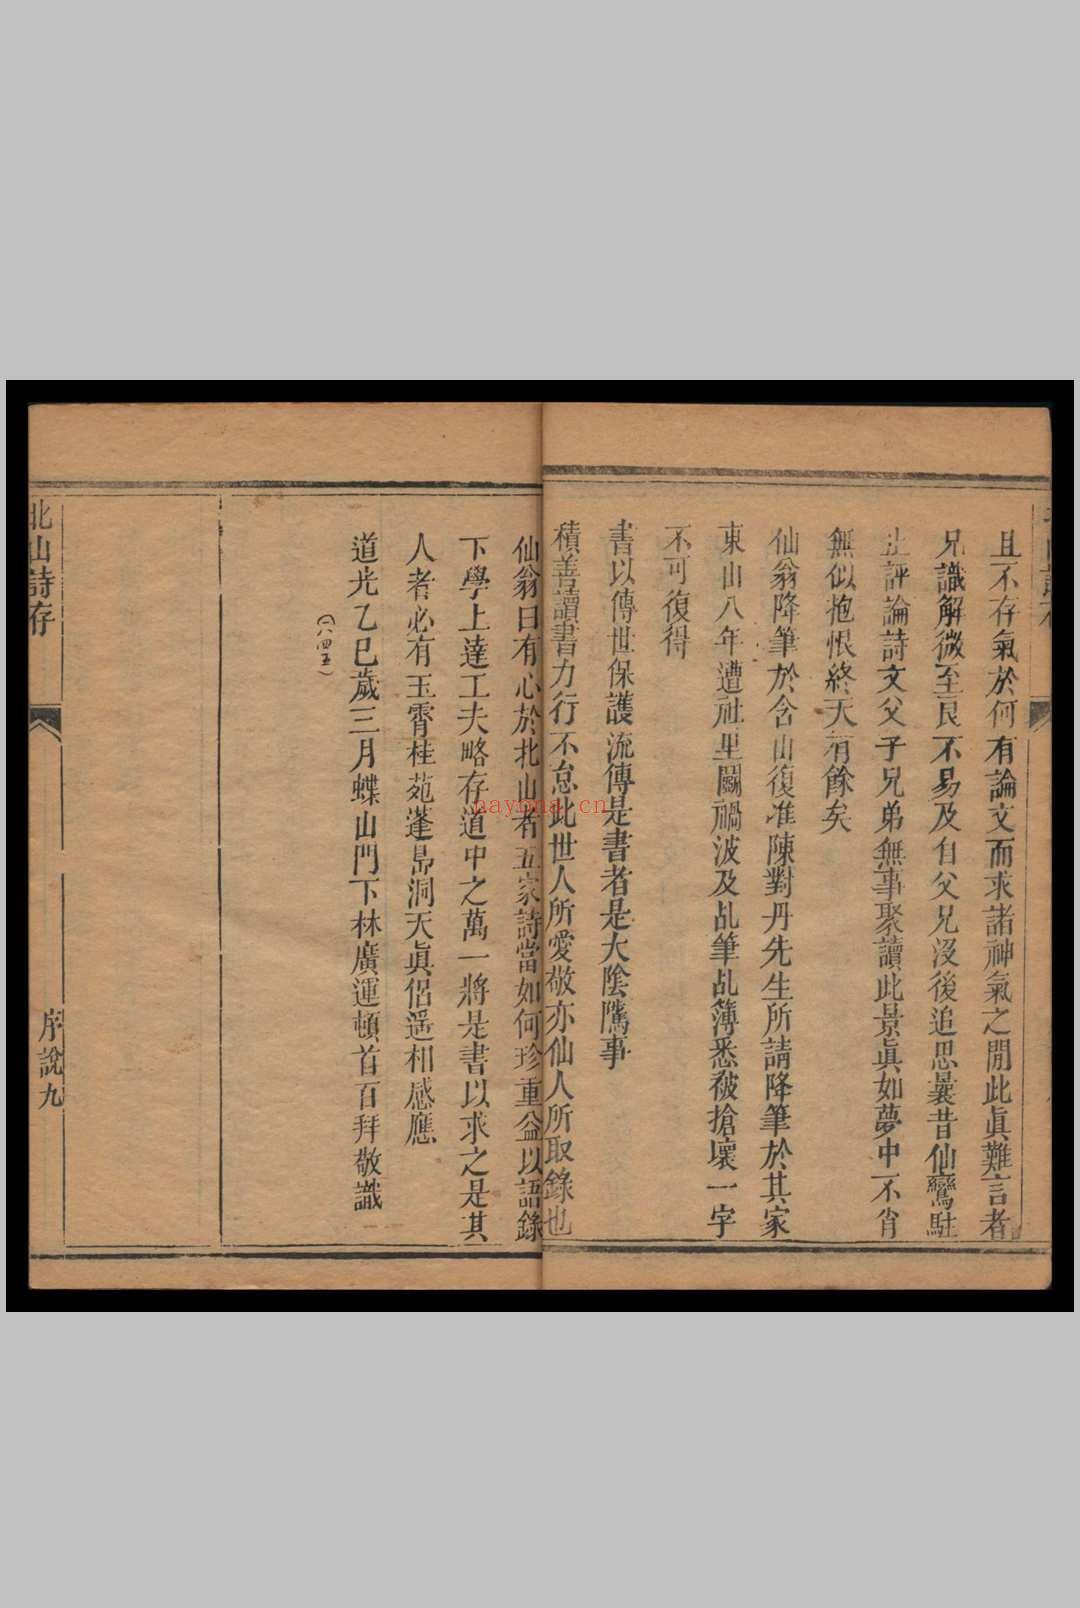 且不存氣於何有論文而求諸神氣之閒此眞難言者
兄識解微至良不易及自父兄沒後追思曩昔仙鸞駐
止評論詩文父子兄弟無事聚讀此景眞如夢中不肖
無似抱恨終天有餘矣
仙翁降筆於含山復准陳對丹先生所請降筆於其家
東山八年遭社里鬭禍波及乩筆乩簿悉被搶壞一字
不可復得
書以傳世保護流傳是書者是大陰隲事
積善讀書力行不怠此世人所愛敬亦仙人所取錄也
仙翁曰有心於北山者五家詩當如何珍重益以語錄
下學上達工夫略存道中之萬一將是書以求之是其
人者必有玉霄桂苑蓬島洞天眞侶遥相感應
道光乙巳歲三月蝶山門下林廣運頓首百拜敬識
（一八四五）
北山詩存
序說九
nayona.cn